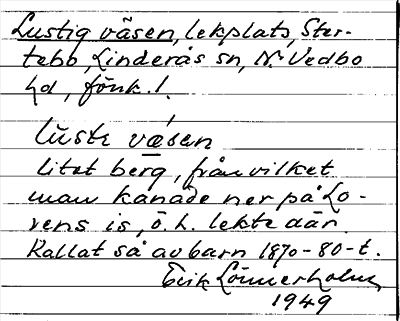 Lustig väsen, lekplats, Ster-
tebo, Linderås sn, N. Vedbo
hd, Jönk. l.
lùste væ̀sen
litet berg, från vilket
man kanade ner på Lo-
rens is, o. h. lekte där.
Kallat så av barn 1870-80-t.
Erik Lönnerholm
1949